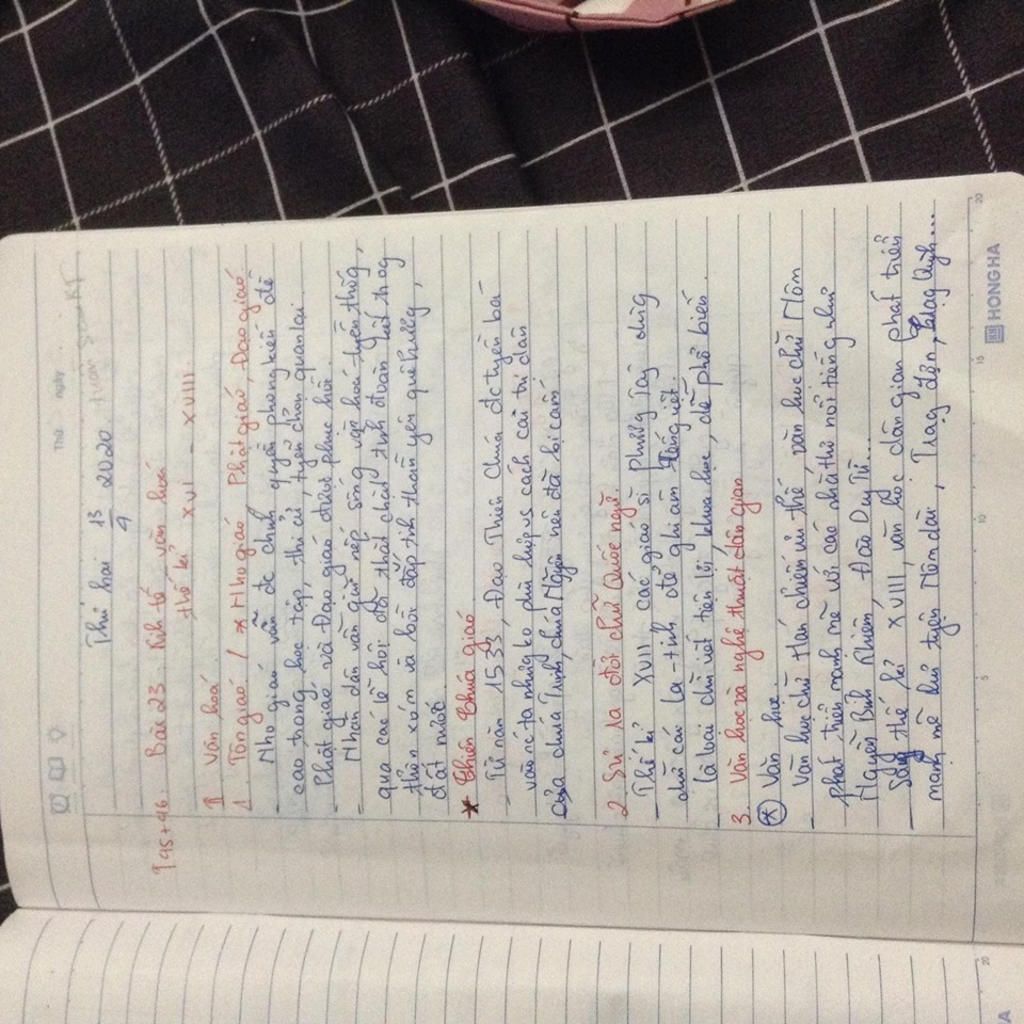 Thứ ngày
Thứ hai 13/4 2020
T45+46. Bài 23 Kinh tế văn hoá
thế kỉ XVI - XVIII
II Văn hoá
1. Tôn giáo / * Nho giáo Phật giáo, Đạo giáo
- Nho giáo vẫn đc chính quyền phong kiến đề
cao trong học tập, thi cử, tuyển chọn quan lại
- Phật giáo và Đạo giáo được phục hồi.
- Nhân dân vẫn giữ nếp sống văn hoá truyền thống,
qua các lễ hội đã thắt chặt tình đoàn kết trog
thôn xóm và bồi đắp tinh thần yêu quê hương,
đất nước
* Thiên Chúa giáo
- Từ năm 1533, Đạo Thiên Chúa đc tuyền bá
vào nc ta nhưng ko phù hợp vs cách cai trị dân
của chúa Trịnh, chúa Nguyễn nên đã bị cấm
2. Sự ra đời chữ Quốc ngữ.
- Thế kỉ XVII các giáo sĩ phương Tây dùng
chữ cái La-tinh để ghi âm tiếng việt.
- là loại chữ viết tiện lợi, khoa học, dễ phổ biến
3. Văn học và nghệ thuật dân gian
(*) Văn học
- Văn học chữ Hán chiếm ưu thế, văn học chữ Nôm
phát triển mạnh mẽ với các nhà thơ nổi tiếng như
Nguyễn Bỉnh Khiêm, Đào Duy Từ...
- Sang thế kỉ XVIII, văn học dân gian phát triển
mạnh mẽ hư truyện Nôm dài, Trạng Lợn, Trạng Quỳnh...
HONG HA
5 10 15 20
20